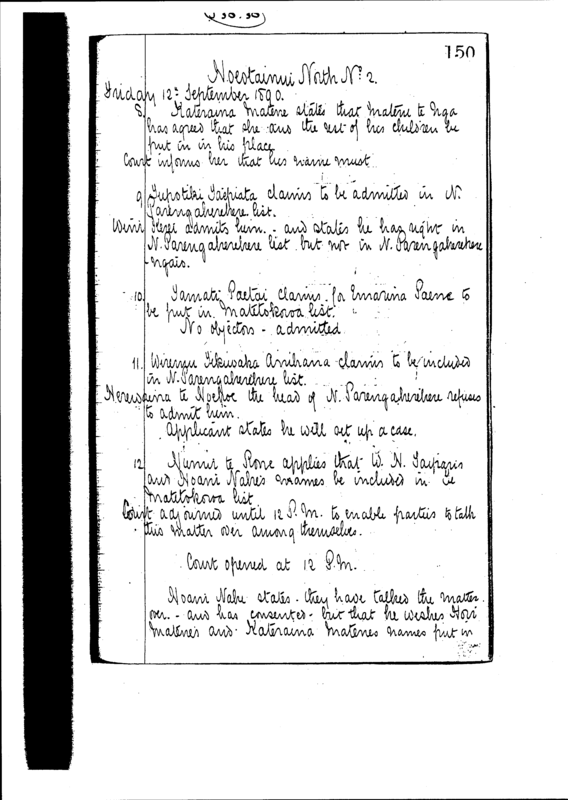 150
Hoeotainui North No 2.
Friday 12th September 1890.
8. Kateraina Matene states that Matene te Nga
has agreed that she and the rest of his children be
put in in his place
Court informs her that his name must
9. claims to be admitted in N.
Parengaherehere list.
admits him. - and states he has right in
N. Parengaherehere list but not in N. Parengaherehere
-ngais.
10. Tamati Paetai claims for Emarina Paene to
be put in Matetokoroa list.
No objectors - admitted
11. Wiremu Anihana claims to be included
in N. Parengaherehere list.
te the head of N. Parengaherehere refuses
to admit him.
Applicant states he will set up a case.
12. te Rore applies that W. N.
and Hoani Nahe's names be included in
Matetokoroa list
Court adjourned until 12 P.M. to enable parties to talk
this matter over among themselves.
Court opened at 12 P.M.
Hoani Nahe states - they have talked the matter
over. - and has consented - but that he wishes Hori
Matene's and Kateraina Matenes names put in